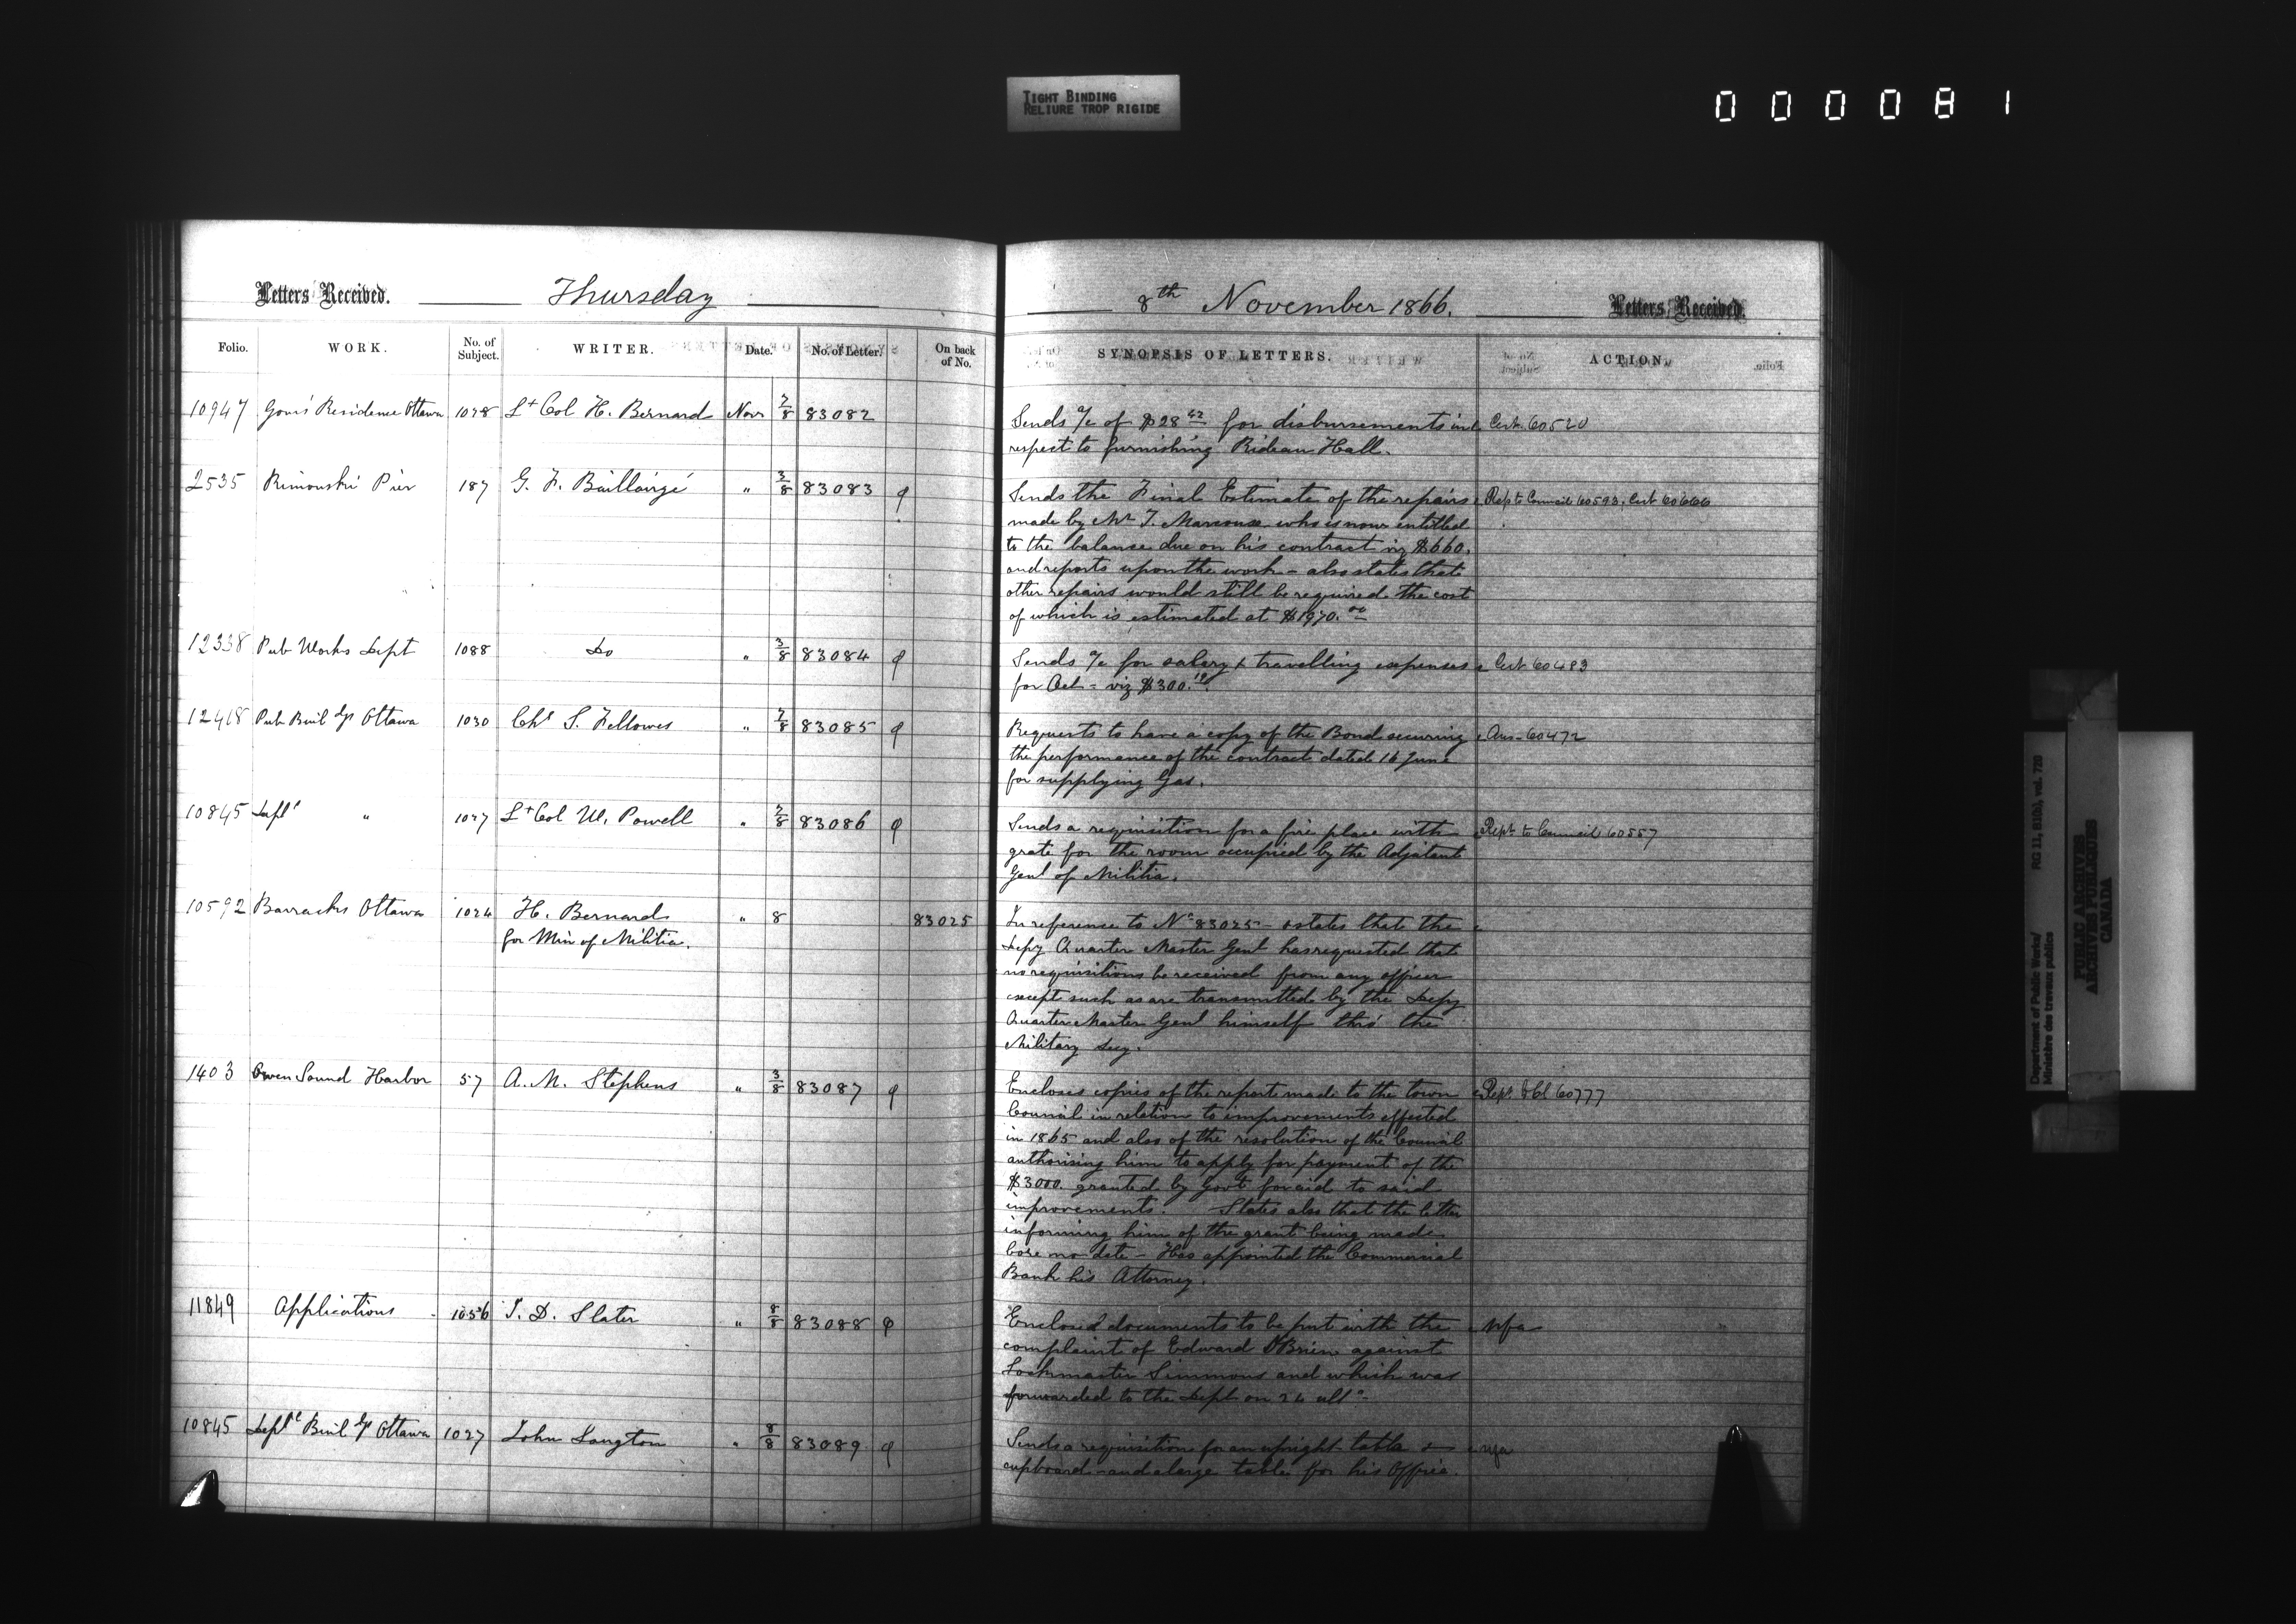 TIGHT BINDING
RELIURE TROP RIGIDE
000081
Letters Received. Thursday
Folio. WORK. No. of Subject. WRITER. Date. No. of Letter. On back of No.
10947 Gour's Residence Ottawa 1028 Lt Col H. Bernard Novr 7/8 83082
2535 Rimouski Pier 187 G. F. Baillairgé " 3/8 83083
12338 Pub Works Dept 1088 Do " 3/8 83084
12418 Pub Buil dgs Ottawa 1030 Chs S. Fellowes " 7/8 83085
10845 Deptl " 1027 Lt Col W. Powell " 7/8 83086
10592 Barracks Ottawa 1024 H. Bernard " 8 83025
for Min of Militia.
1403 Owen Sound Harbor 57 A. M. Stephens " 3/8 83087
11849 Applications 1056 T. D. Slater " 8/8 83088
10845 Deptl Buil dgs Ottawa 1027 John Langton " 8/8 83089
8th November 1866. Letters Received.
SYNOPSIS OF LETTERS. ACTION.
Sends a/c of $28 42 for disbursements in Cert. 60520
respect to furnishing Rideau Hall.
Sends the Final Estimate of the repairs Rep to Council 60593. Cert 60666
made by Mr T. who is now entitled
to the balance due on his contract viz $660.
and reports upon the work - also states that
other repairs would still be required the cost
of which is estimated at $1970.00
Sends a/c for salary & travelling expenses Cert 60483
for Oct - viz $300.19.
Requests to have a copy of the Bond securing Ans - 60472
the performance of the contract dated 16 June
for supplying Gas.
Sends a requisition for a fire place with Rept to Council 60557
grate for the room occupied by the Adjutant
Genl of Militia.
In reference to No 83025 - states that the
Depy Quarter Master Genl has requested that
no requisitions be received from any officer
except such as are transmitted by the Depy
Quarter Master Genl himself thro' the
Military Secy.
Encloses copies of the report made to the town Rept. to Cl 60777
Council in relation to improvements effected
in 1865 and also of the resolution of the Council
authorising him to apply for payment of the
$3000. granted by Govt for aid to said
improvements. States also that the letter
informing him of the grant being made
bore no date - Has appointed the Commercial
Bank his Attorney.
Enclosed documents to be put with the nfa
complaint of Edward O'Brien against
Lockmaster Simmons and which was
forwarded to the Dept on 24 ulto -
Sends a requisition for an upright table & nfa
cupboard - and a large table for his Office.
Department of Public Works/ RG 11, B1(b), vol. 720
Ministère des travaux publics
PUBLIC ARCHIVES
ARCHIVES PUBLIQUES
CANADA